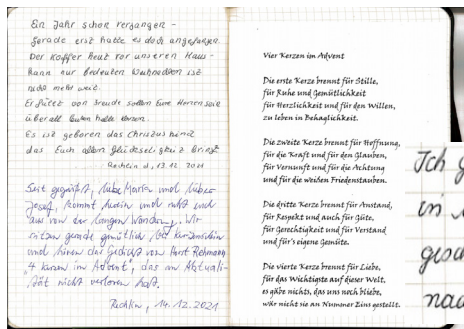 Ein Jahr schon vergangen -
gerade erst hatte es doch angefangen.
Der Koffer heut vor unserem Haus -
kann nur bedeuten Weihnachten ist
nicht mehr weit.
Erfüllt von Freude sollen Eure Herzen sein
überall
Es ist geboren das Christuskind
das Euch allen Glückseligkeit bringt
Rechlin d, 13.12.2021
Seid gegrüßt, liebe Maria und lieber
Josef, kommt herein und ruht euch
aus von der langen Wanderung. Wir
sitzen gerade gemütlich bei Kerzenschein
und hören das Gedicht von Horst Rehmann
"4 Kerzen im Advent", das an Aktuali-
tät nicht verloren hat.
Rechlin, 14.12.2021
Vier Kerzen im Advent
Die erste Kerze brennt für Stille,
für Ruhe und Gemütlichkeit
für Herzlichkeit und für den Willen,
zu leben in Behaglichkeit.
Die zweite Kerze brennt für Hoffnung,
für die Kraft und für den Glauben,
für Vernunft und für die Achtung
und für die weißen Friedenstauben.
Die dritte Kerze brennt für Anstand,
für Respekt und auch für Güte,
für Gerechtigkeit und für Verstand
und für's eigene Gemüte.
Die vierte Kerze brennt für Liebe,
für das Wichtigste auf dieser Welt,
es gäbe nichts, das uns noch bliebe,
wär nicht sie an Nummer Eins gestellt.
Ich g
in
gesch
nac